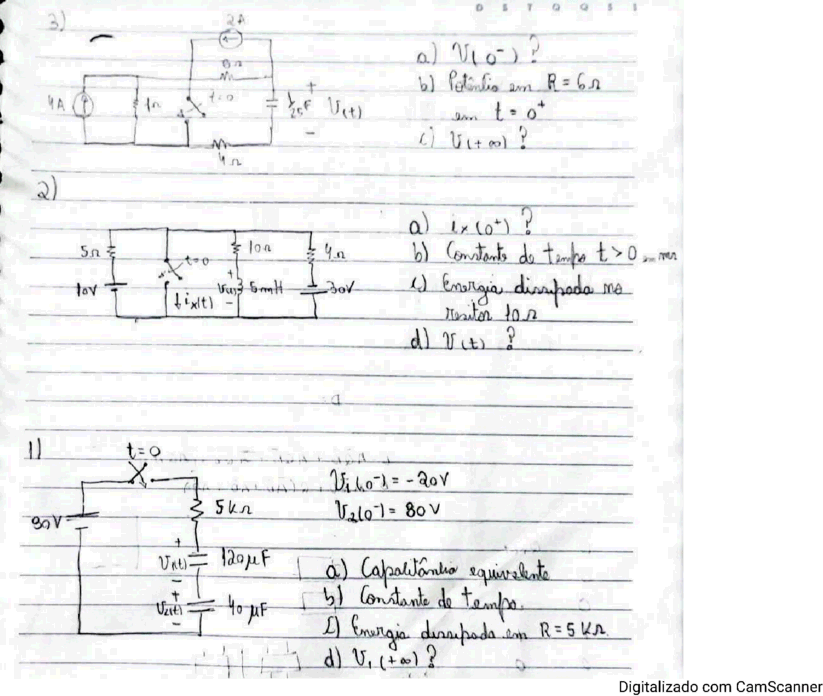 D S T Q Q S S
3)
2A
6Ω
4A
1Ω
t=0
1/25 F
V(t)
+
-
4Ω
a) V(0⁻) ?
b) Potência em R = 6Ω
em t = 0⁺
c) V(+∞) ?
2)
5Ω
10V
t=0
ix(t)
10Ω
+
-
5mH
4Ω
30V
a) ix(0⁺) ?
b) Constante de tempo t > 0 em ms
c) Energia dissipada no
resitor 10Ω
d) V(t) ?
1)
t=0
5kΩ
+
V1(t)
-
120μF
+
V2(t)
-
40μF
V1(0⁻) = -20V
V2(0⁻) = 80V
a) Capacitância equivalente
b) Constante de tempo.
c) Energia dissipada em R = 5KΩ.
d) V1(+∞) ?
Digitalizado com CamScanner